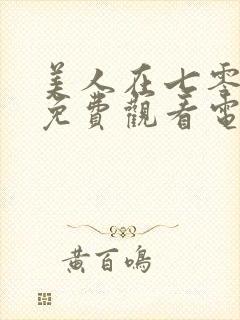 美人在七零
免費觀看電
黃百鳴